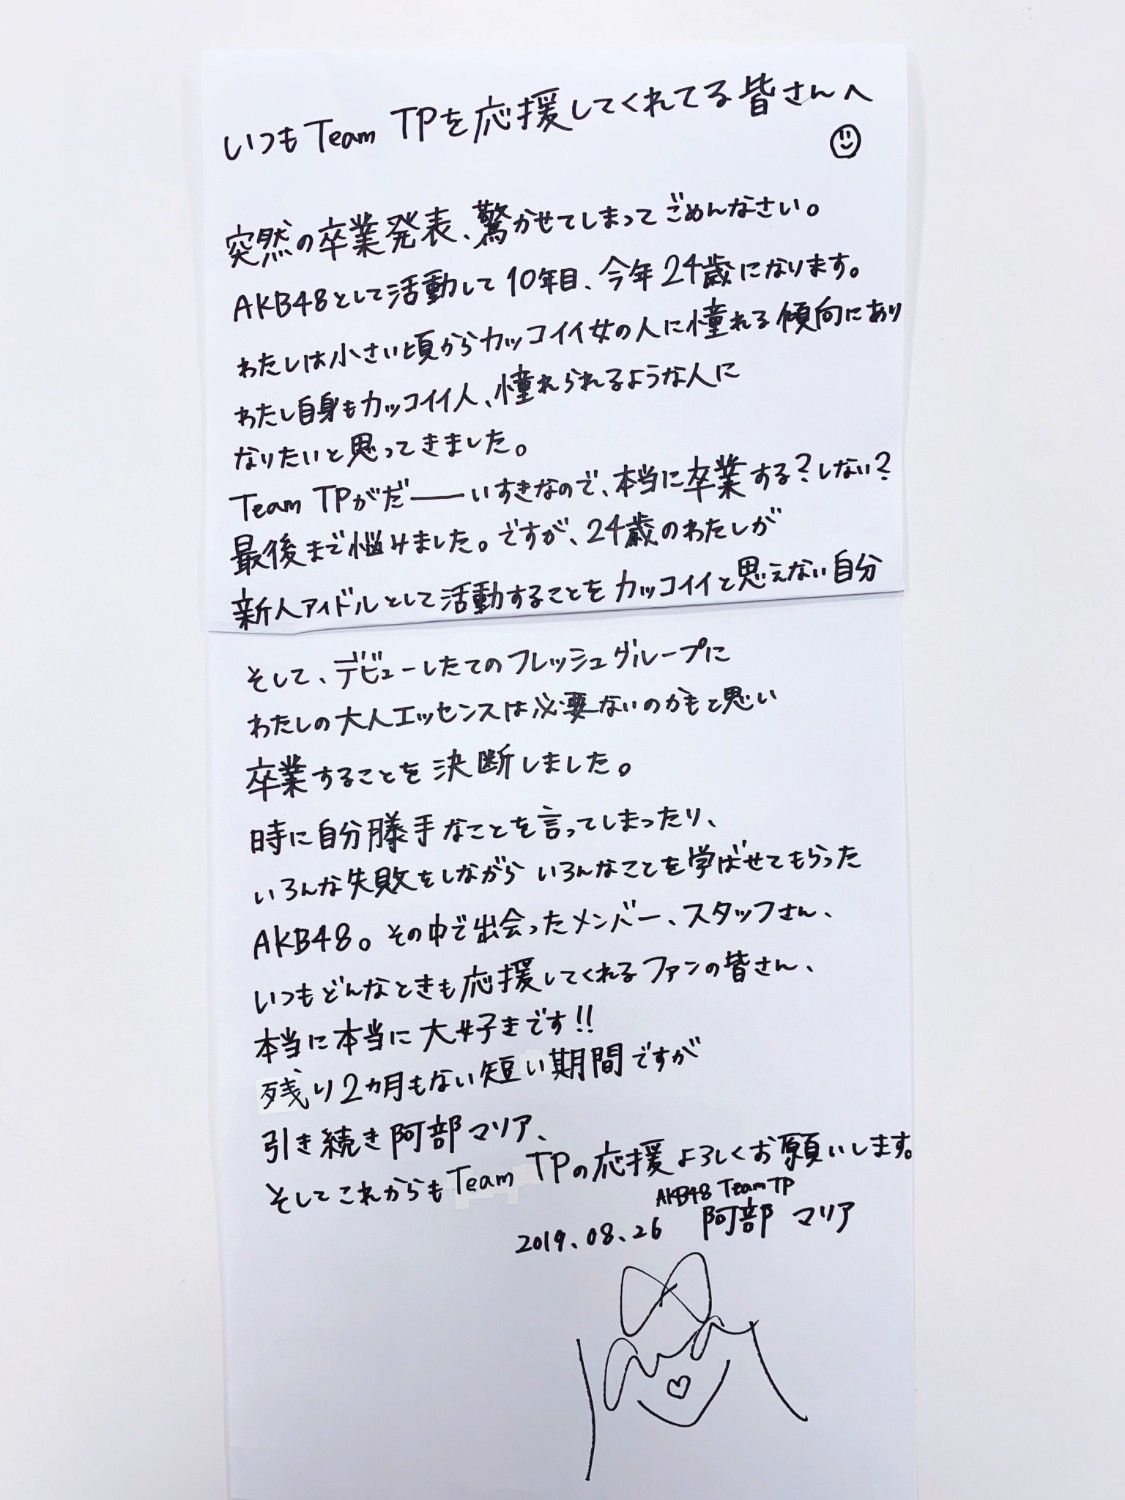 いつもTeam TPを応援してくれてる皆さんへ
突然の卒業発表、驚かせてしまってごめんなさい。
AKB48として活動して10年目、今年24歳になります。
わたしは小さい頃からカッコイイ女の人に憧れる傾向にあり
わたし自身もカッコイイ人、憧れられるような人に
なりたいと思ってきました。
Team TPがだーーいすきなので、本当に卒業する?しない?
最後まで悩みました。ですが、24歳のわたしが
新人アイドルとして活動することをカッコイイと思えない自分
そして、デビューしたてのフレッシュグループに
わたしの大人エッセンスは必要ないのかもと思い
卒業することを決断しました。
時に自分勝手なことを言ってしまったり、
いろんな失敗をしながらいろんなことを学ばせてもらった
AKB48。その中で出会ったメンバー、スタッフさん、
いつもどんなときも応援してくれるファンの皆さん、
本当に本当に大好きです!!
残り2ヵ月もない短い期間ですが
引き続き阿部マリア、
そしてこれからもTeam TPの応援よろしくお願いします。
AKB48 Team TP
2019.08.26 阿部マリア